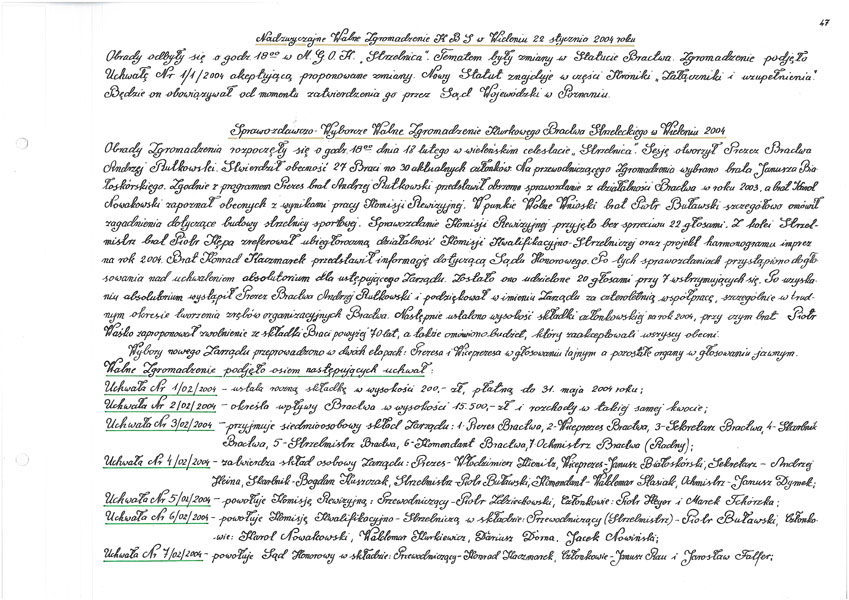 47
Nadzwyczajne Walne Zgromadzenie K B S w Wieleniu 22 stycznia 2004 roku
Obrady odbyły się o godz. 18⁰⁰ w M.G.O.K. „Strzelnica". Tematem były zmiany w Statucie Bractwa. Zgromadzenie podjęło
Uchwałę Nr 1/1/2004 akceptującą proponowane zmiany. Nowy Statut znajduje w części Kroniki „Załączniki i uzupełnienia."
Będzie on obowiązywał od momentu zatwierdzenia go przez Sąd Wojewódzki w Poznaniu.
Sprawozdawczo-Wyborcze Walne Zgromadzenie Kurkowego Bractwa Strzeleckiego w Wieleniu 2004
Obrady Zgromadzenia rozpoczęły się o godz. 18⁰⁰ dnia 18 lutego w wieleńskim celestacie „Strzelnica". Sesję otworzył Prezes Bractwa
Andrzej Rutkowski. Stwierdził obecność 27 Braci na 30 aktualnych członków. Na przewodniczącego Zgromadzenia wybrano brata Janusza Bia-
łoskórskiego. Zgodnie z programem Prezes brat Andrzej Rutkowski przedstawił obszerne sprawozdanie z działalności Bractwa w roku 2003, a brat Karol
Nowakowski zapoznał obecnych z wynikami pracy Komisji Rewizyjnej. W punkcie Wolne Wnioski brat Piotr Buławski szczegółowo omówił
zagadnienia dotyczące budowy strzelnicy sportowej. Sprawozdanie Komisji Rewizyjnej przyjęto bez sprzeciwu 22 głosami. Z kolei Strzel-
mistrz brat Piotr Kępa zreferował ubiegłoroczną działalność Komisji Kwalifikacyjno-Strzelniczej oraz projekt harmonogramu imprez
na rok 2004. Brat Konrad Kaczmarek przedstawił informację dotyczącą Sądu Honorowego. Po tych sprawozdaniach przystąpiono do gło-
sowania nad uchwaleniem absolutorium dla ustępującego Zarządu. Zostało ono udzielone 20 głosami przy 7 wstrzymujących się. Po uzyska-
niu absolutorium wystąpił Prezes Bractwa Andrzej Rutkowski i podziękował w imieniu Zarządu za czteroletnią współpracę, szczególnie w trud-
nym okresie tworzenia zrębów organizacyjnych Bractwa. Następnie ustalono wysokość składki członkowskiej na rok 2004, przy czym brat Piotr
Waśko zaproponował zwolnienie ze składki Braci powyżej 70 lat, a także omówiono budżet, który zaakceptowali wszyscy obecni.
Wybory nowego Zarządu przeprowadzono w dwóch etapach: Prezesa i Wiceprezesa w głosowaniu tajnym a pozostałe organy w głosowaniu jawnym.
Walne Zgromadzenie podjęło osiem następujących uchwał:
Uchwała Nr 1/02/2004 - ustala roczną składkę w wysokości 200,- zł, płatną do 31. maja 2004 roku;
Uchwała Nr 2/02/2004 - określa wpływy Bractwa w wysokości 15.500,-zł i rozchody w takiej samej kwocie;
Uchwała Nr 3/02/2004 - przyjmuje siedmioosobowy skład Zarządu: 1-Prezes Bractwa, 2-Wiceprezes Bractwa, 3-Sekretarz Bractwa, 4-Skarbnik
Bractwa, 5-Strzelmistrz Bractwa, 6-Komendant Bractwa, 7 Ochmistrz Bractwa (Radny);
Uchwała Nr 4/02/2004 - zatwierdza skład osobowy Zarządu: Prezes-Włodzimierz Ziemita, Wiceprezes-Janusz Białoskórski, Sekretarz - Andrzej
Heina, Skarbnik-Bogdan Kuszczak, Strzelmistrz-Piotr Buławski, Komendant-Waldemar Ptasiak, Ochmistrz-Janusz Dymek;
Uchwała Nr 5/02/2004 - powołuje Komisję Rewizyjną: Przewodniczący-Piotr Zdzieckowski, Członkowie: Piotr Heyer i Marek Tchórzka;
Uchwała Nr 6/02/2004 - powołuje Komisję Kwalifikacyjno-Strzelniczą w składzie: Przewodniczący (Strzelmistrz)-Piotr Buławski, Członko-
wie: Karol Nowakowski, Waldemar Kurkiewicz, Dariusz Dorna, Jacek Nowiński;
Uchwała Nr 7/02/2004 - powołuje Sąd Honorowy w składzie: Przewodniczący-Konrad Kaczmarek, Członkowie-Janusz Rau i Jarosław Falfer;